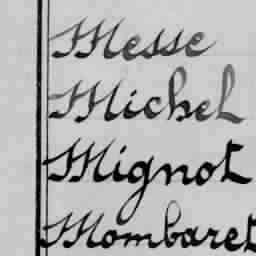 Messe
Michel
Mignot
Mombaret